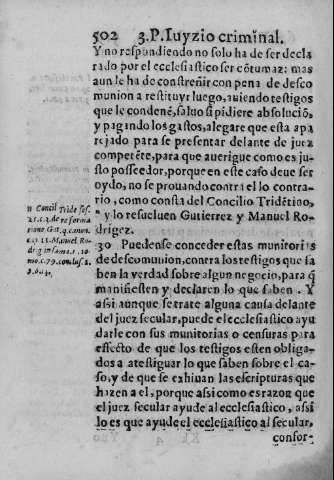 502 3.P. Iuyzio criminal.
Y no respondiendo no solo ha de ser decla
rado por el ecclesiastico ser cõtumaz: mas
aun le ha de constreñir con pena de desco
munion a restituyr luego, auiendo testigos
que le condenẽ, saluo si pidiere absoluciõ,
y pagando los gastos, alegare que esta apa
rejado para se presentar delante de juez
competẽte, para que auerigue como es ju-
sto posseedor, porque en este caso deue ser
oydo, no se prouando contra el lo contra-
rio, como consta del Concilio Tridẽtino,
y lo resueluen Gutierrez y Manuel Ro-
drigez.
11 Concil Tride. ses.
25. c. 3. de reforma
tione Gut. q. canon.
c. 11. Manuel Ro-
drig in suma. 1. to
mo. c. 79. conclus. 2.
30 Puedense conceder estas munitorias
de descomunion, contra los testigos que sa
ben la verdad sobre algun negocio, para q̃
manifiesten y declaren lo que saben. Y
assi aunque se trate alguna causa delante
del juez secular, puede el ecclesiastico ayu
darle con sus munitorias o censuras para
effecto de que los testigos esten obliga-
dos a atestiguar lo que saben sobre el ca-
so, y de que se exhiuan las escripturas que
hazen a el, porque assi como es razon que
el juez secular ayude al ecclesiastico, assi
lo es que ayude el ecclesiastico al secular,
confor-